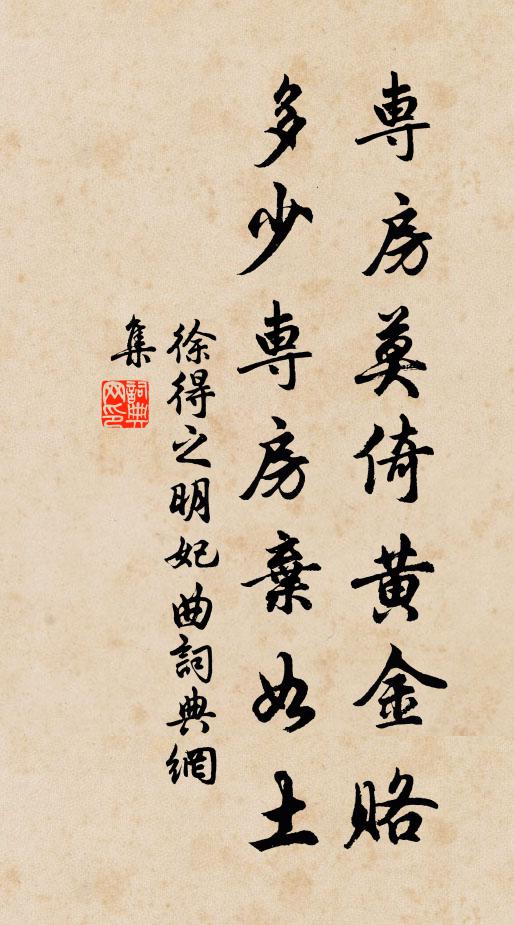 専房莫倚黄金賂
多少専房棄如土
徐得之明妃曲詞典網
集
詞典
网印